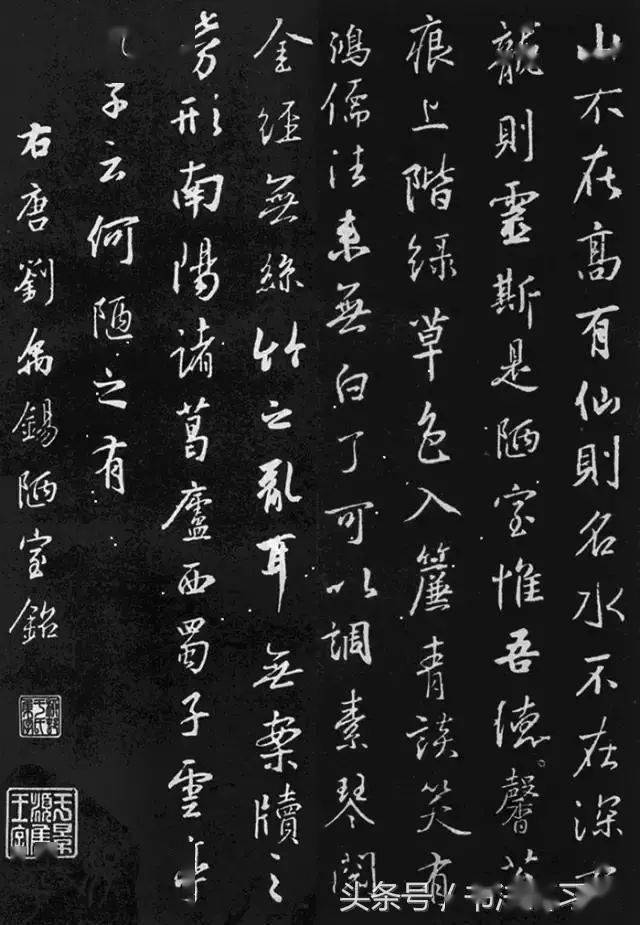 山不在高有仙則名水不在深
龍則靈斯是陋室惟吾德馨苔
痕上階綠草色入簾青談笑有
鴻儒往來無白丁可以調素琴閱
金經無絲竹之亂耳無案牘之
勞形南陽諸葛廬西蜀子雲亭
子云何陋之有
右唐劉禹錫陋室銘
头条号 / 书法习